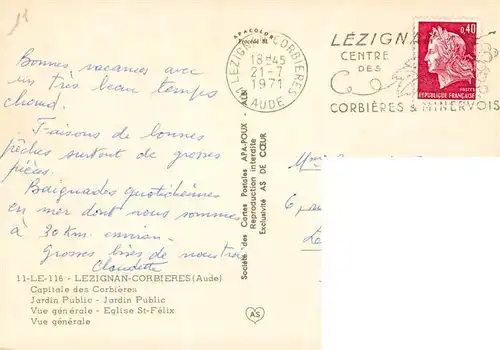 Bonnes vacances avec
un très beau temps
chaud.
Faisons de bonnes
pêches surtout de grosses
pièces.
Baignades quotidiennes
en mer dont nous sommes
à 30 Km. environ.
Grosses bises de nous trois
Claudette
11-LE-116 - LEZIGNAN-CORBIERES (Aude)
Capitale des Corbières
Jardin Public - Jardin Public
Vue générale - Eglise St-Félix
Vue générale
APACOLOR
Société des Cartes Postales APA-POUX - ALBI
Reproduction interdite
Exclusivité AS DE CŒUR
AS
LEZIGNAN-CORBIERES
18H45
21-7
1971
AUDE
LÉZIGNAN
CENTRE
DES
CORBIÈRES & MINERVOIS
0,40
POSTES
REPUBLIQUE FRANÇAISE